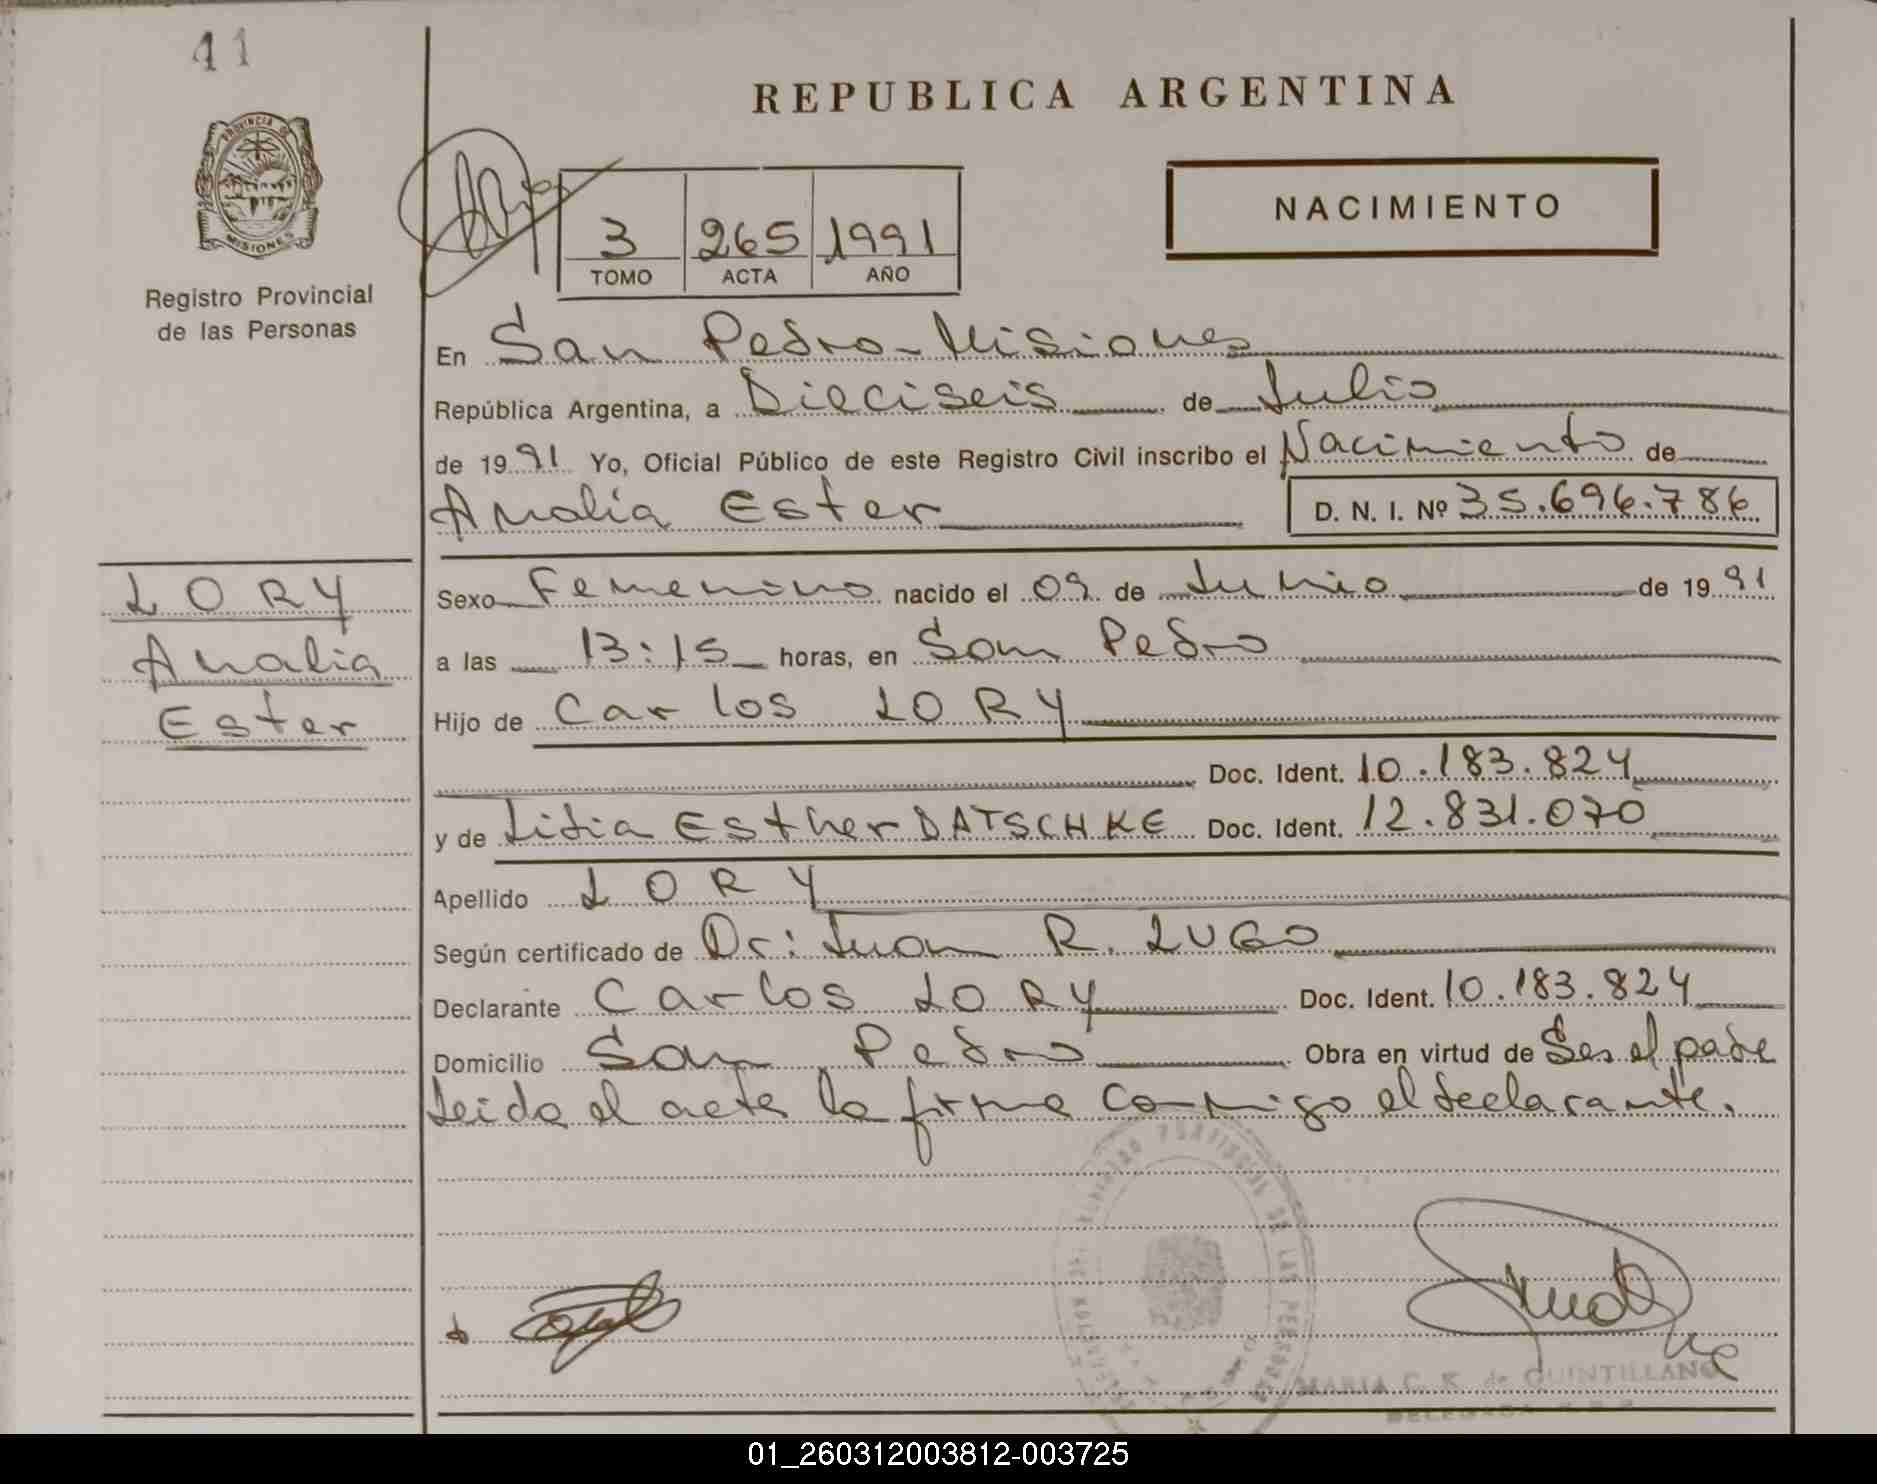 41
PROVINCIA DE
MISIONES
Registro Provincial
de las Personas
REPUBLICA ARGENTINA
NACIMIENTO
3 265 1991
TOMO ACTA AÑO
En San Pedro-Misiones
República Argentina, a Dieciseis de Julio
de 1991 Yo, Oficial Público de este Registro Civil inscribo el Nacimiento de
Analía Ester D. N. I. Nº 35.696.786
LORY
Analia
Ester
Sexo Femenino nacido el 09 de Junio de 1991
a las 13:15 horas, en San Pedro
Hijo de Carlos LORY
Doc. Ident. 10.183.824
y de Lidia Esther DATSCHKE Doc. Ident. 12.831.070
Apellido LORY
Según certificado de Dr: Juan R. LUGO
Declarante Carlos LORY Doc. Ident. 10.183.824
Domicilio San Pedro Obra en virtud de Ser el padre
Leida el acta la firma conmigo el declarante.
DE LAS PERSONAS
MARIA C. K. de QUINTILLANO
DELEGADA
01_260312003812-003725